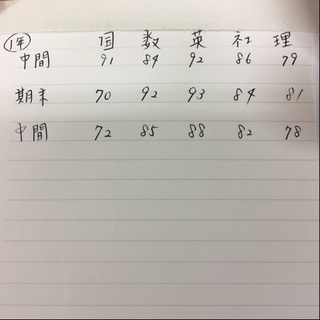 ①年 国 数 英 社 理
中間 91 84 92 86 79
期末 70 92 93 84 81
中間 72 85 88 82 78